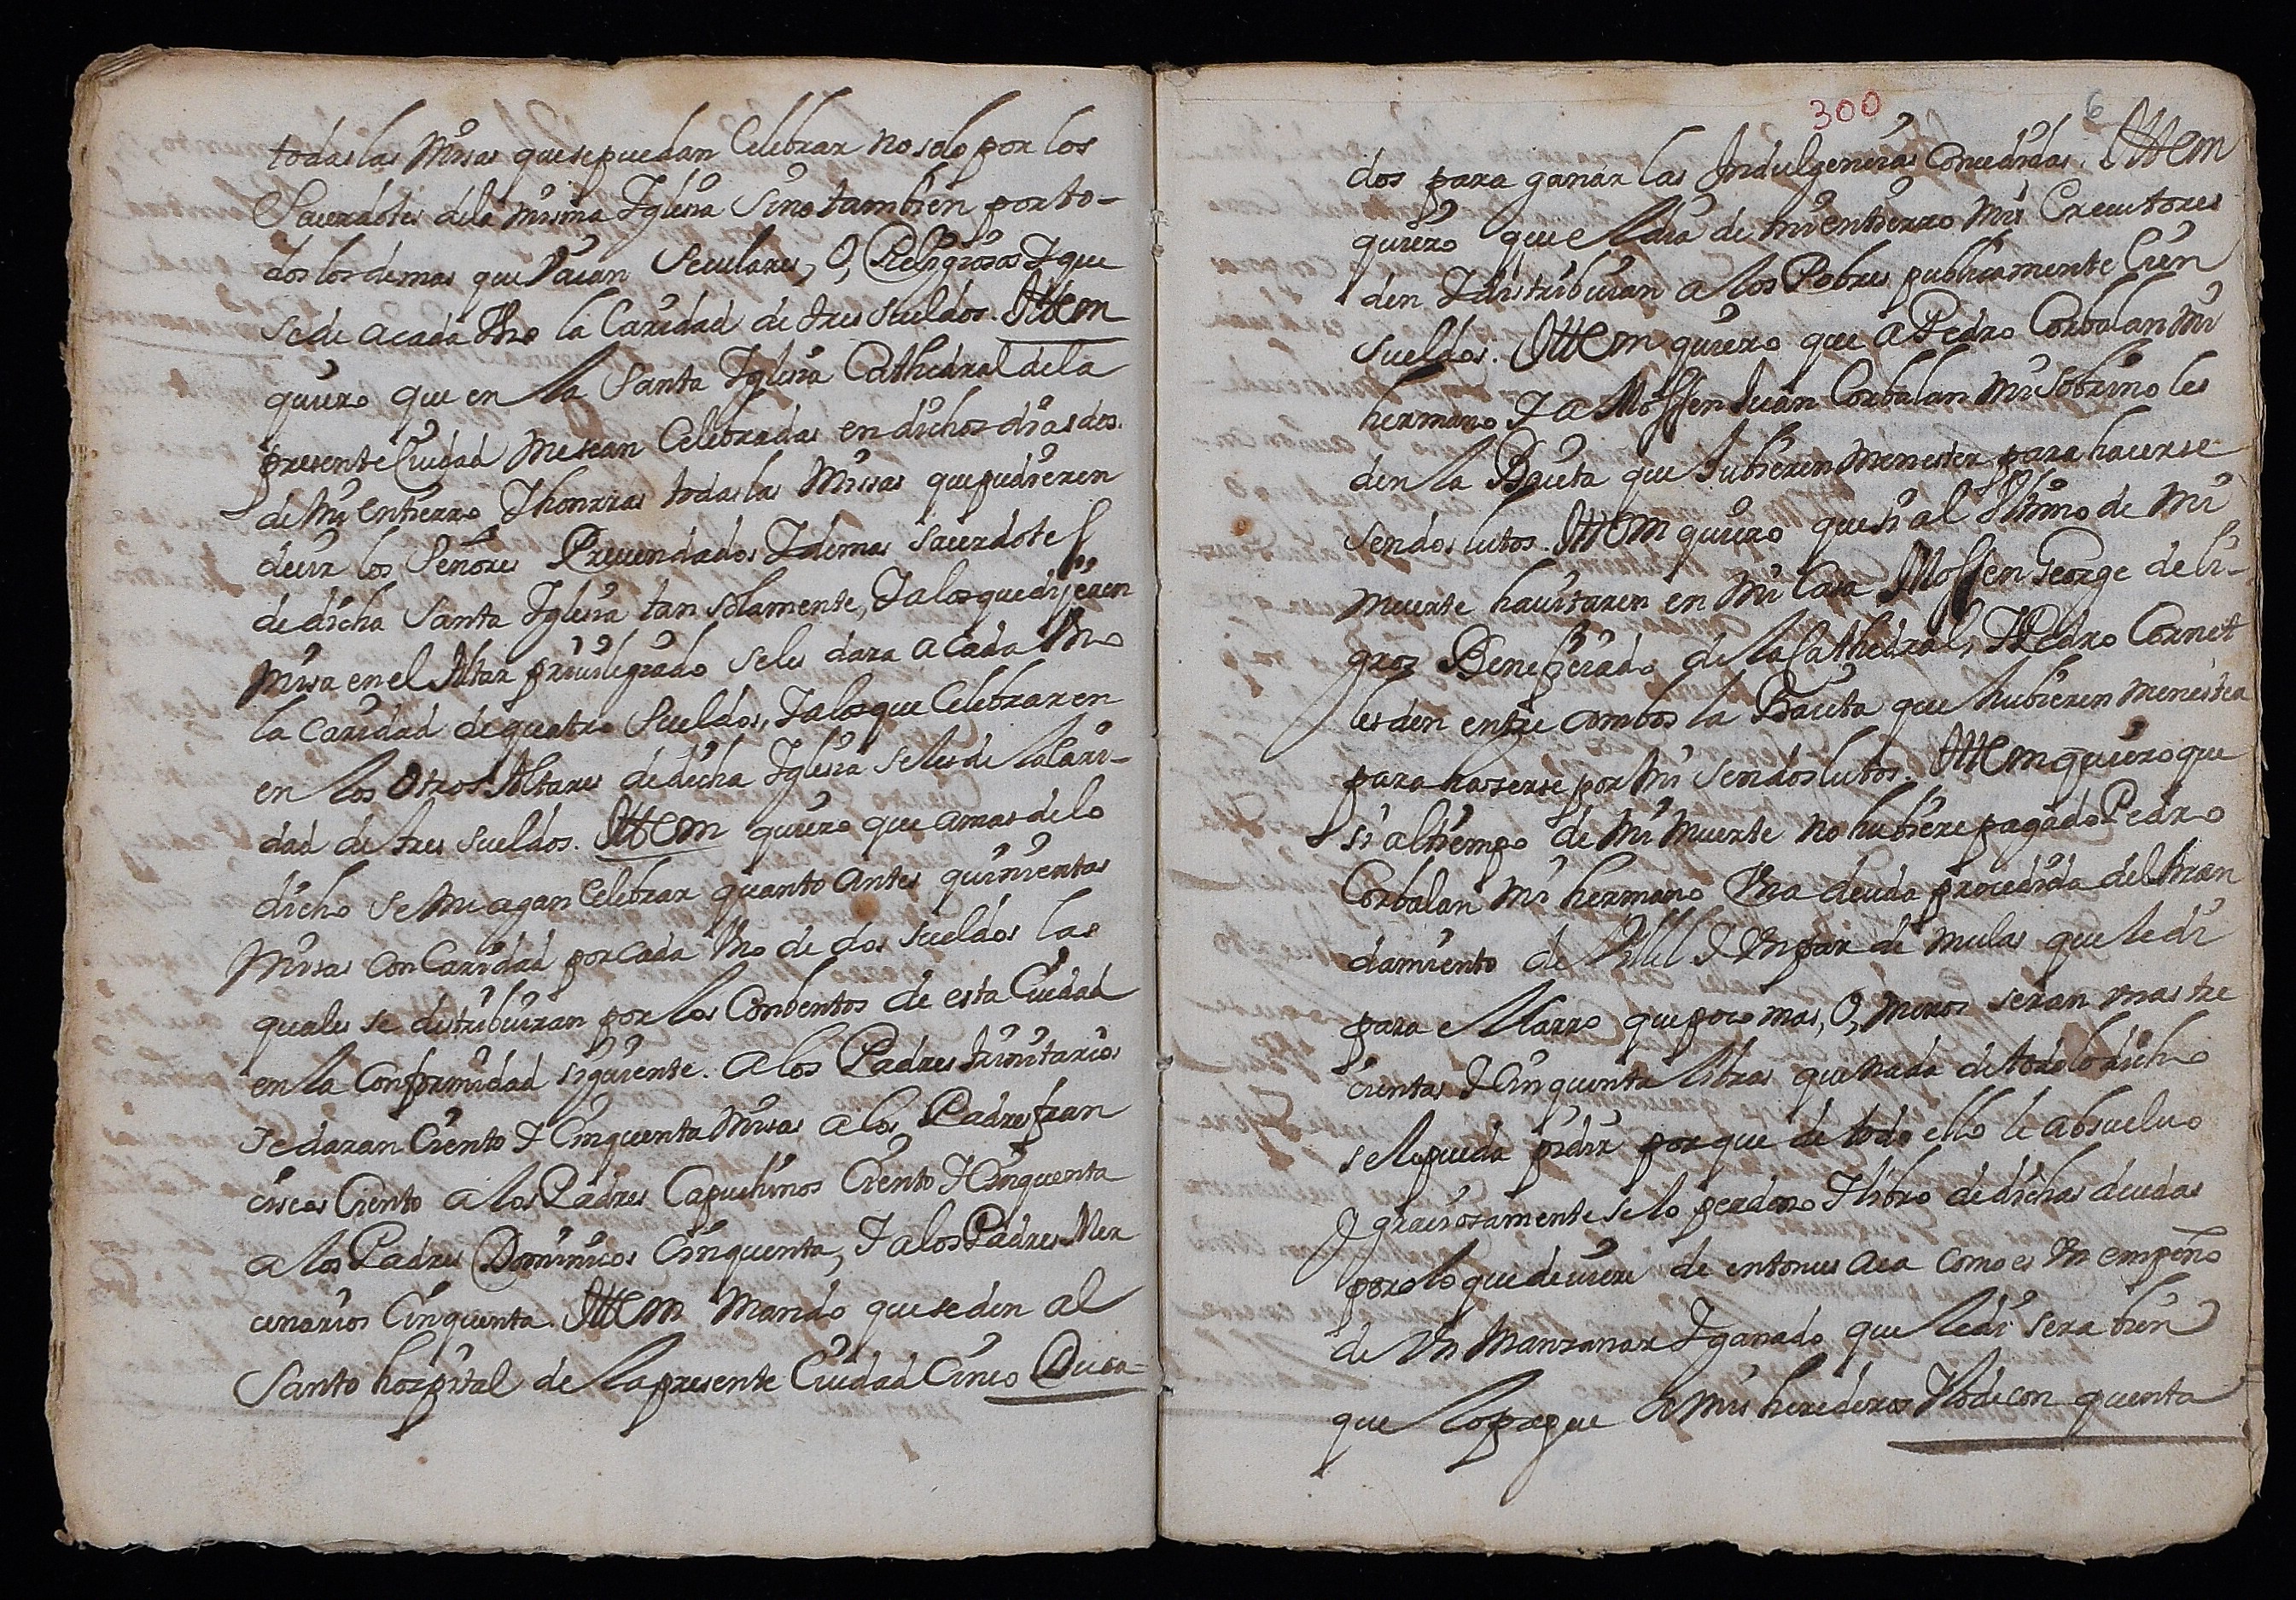 todas las Missas que se puedan Celebrar no solo por los
Sacerdotes dela misma Iglesia Sino tambien por to-
dos los demas que Vaian Seculares, O, Religiosos I que
se de a cada Uno la Caridad de tres sueldos. Ittem
quiero que en la Santa Iglesia Cathedral dela
presente Ciudad me sean Celebradas en dichos dias dos.
de mi entierro I honrras todas las Missas que pudieren
decir los Señores Prevendados I demas sacerdotes
de dicha Santa Iglesia tan solamente, I alos que dijeren
Missa en el Altar privilegiado se les dara a cada Uno
la caridad de quatro sueldos, I alos que Celebraren
en los Otros Altares de dicha Iglesia se les de la Cari-
dad de tres sueldos. Ittem quiero que amas delo
dicho se me agan Celebrar quanto antes quinientas
Missas con Caridad por cada Uno de dos sueldos las
quales se distribuiran por los Conbentos de esta Ciudad
en la Conformidad siguiente. a los Padres trinitarios
se daran Ciento I Cinquenta Missas a los Padres fran
ciscos Ciento a los Padres Capuchinos Ciento I Cinquenta
a los Padres Dominicos Cinquenta, I a los Padres Mer
cenarios Cinquenta. Ittem Mando que se den al
Santo hospital de la presente Ciudad Cinco Duca-
300
6
dos para ganar las Indulgencias Concedidas. Ittem
quiero que el dia de mi entierro mis Executores
den I distribuian a los Pobres publicamente Cien
sueldos. Ittem quiero que a Pedro Corbalan mi
hermano I a Mossen Juan Corbalan mi sobrino les
den la Baieta que tubieren menester para hacerse
sendos lutos. Ittem quiero que si al Ultimo de mi
muerte havitaren en mi Casa Mossen George de li-
gros Beneficiado de la Cathedral, I Pedro Cornet
les den entre ambos la Baieta que hubieren menester
para hazerse por mi sendos lutos. Ittem quiero que
si al tiempo de mi muerte no hubiere pagado Pedro
Corbalan mi hermano Una deuda procedida del Arran
damiento de Villel I Un par de mulas que le di
para el Carro que poco mas, O, menos seran unas tre
cientas I Cinquenta libras que nada de todo lo dicho
se le pueda pidir por que de todo ello le absuelvo
I graciosamente se lo perdono I libro de dichas deudas
pero lo que deviere de entonces aca como es Un empeño
de Un Manzanar I ganado que le di sera bien
que lo pague a mis herederos I lo de con quenta